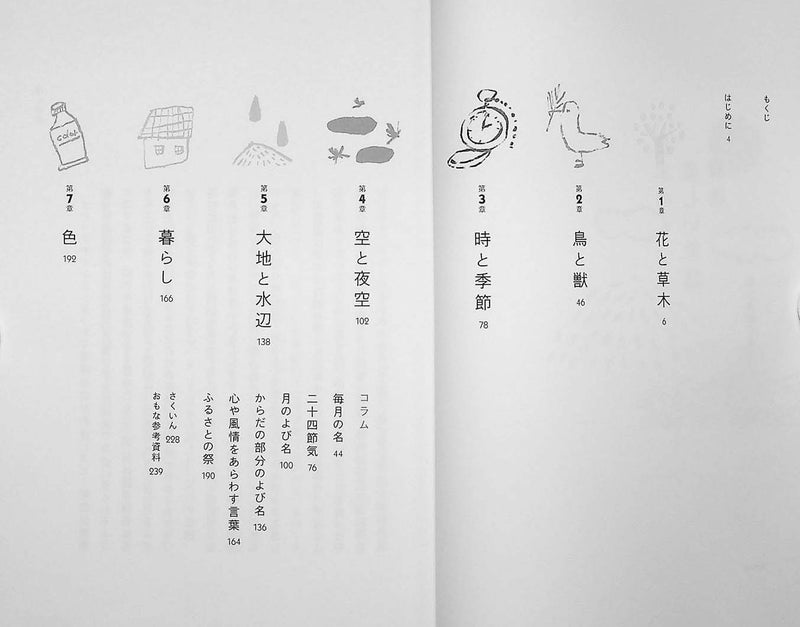 もくじ
はじめに 4
第1章 花と草木 6
第2章 鳥と獣 46
第3章 時と季節 78
第4章 空と夜空 102
第5章 大地と水辺 138
第6章 暮らし 166
第7章 色 192
コラム
毎月の名 44
二十四節気 76
月のよび名 100
からだの部分のよび名 136
心や風情をあらわす言葉 164
ふるさとの祭 190
さくいん 228
おもな参考資料 239
color